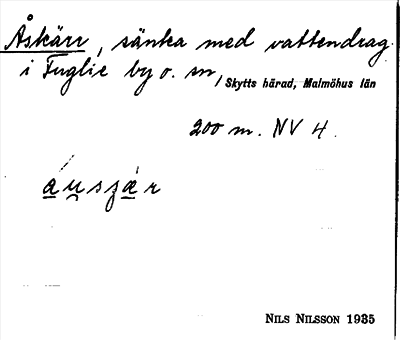 Åskärr, sänka med vattendrag
i Fuglie by o. sn, Skytts härad, Malmöhus län
200 m. NV 4.
Nils Nilsson 1935